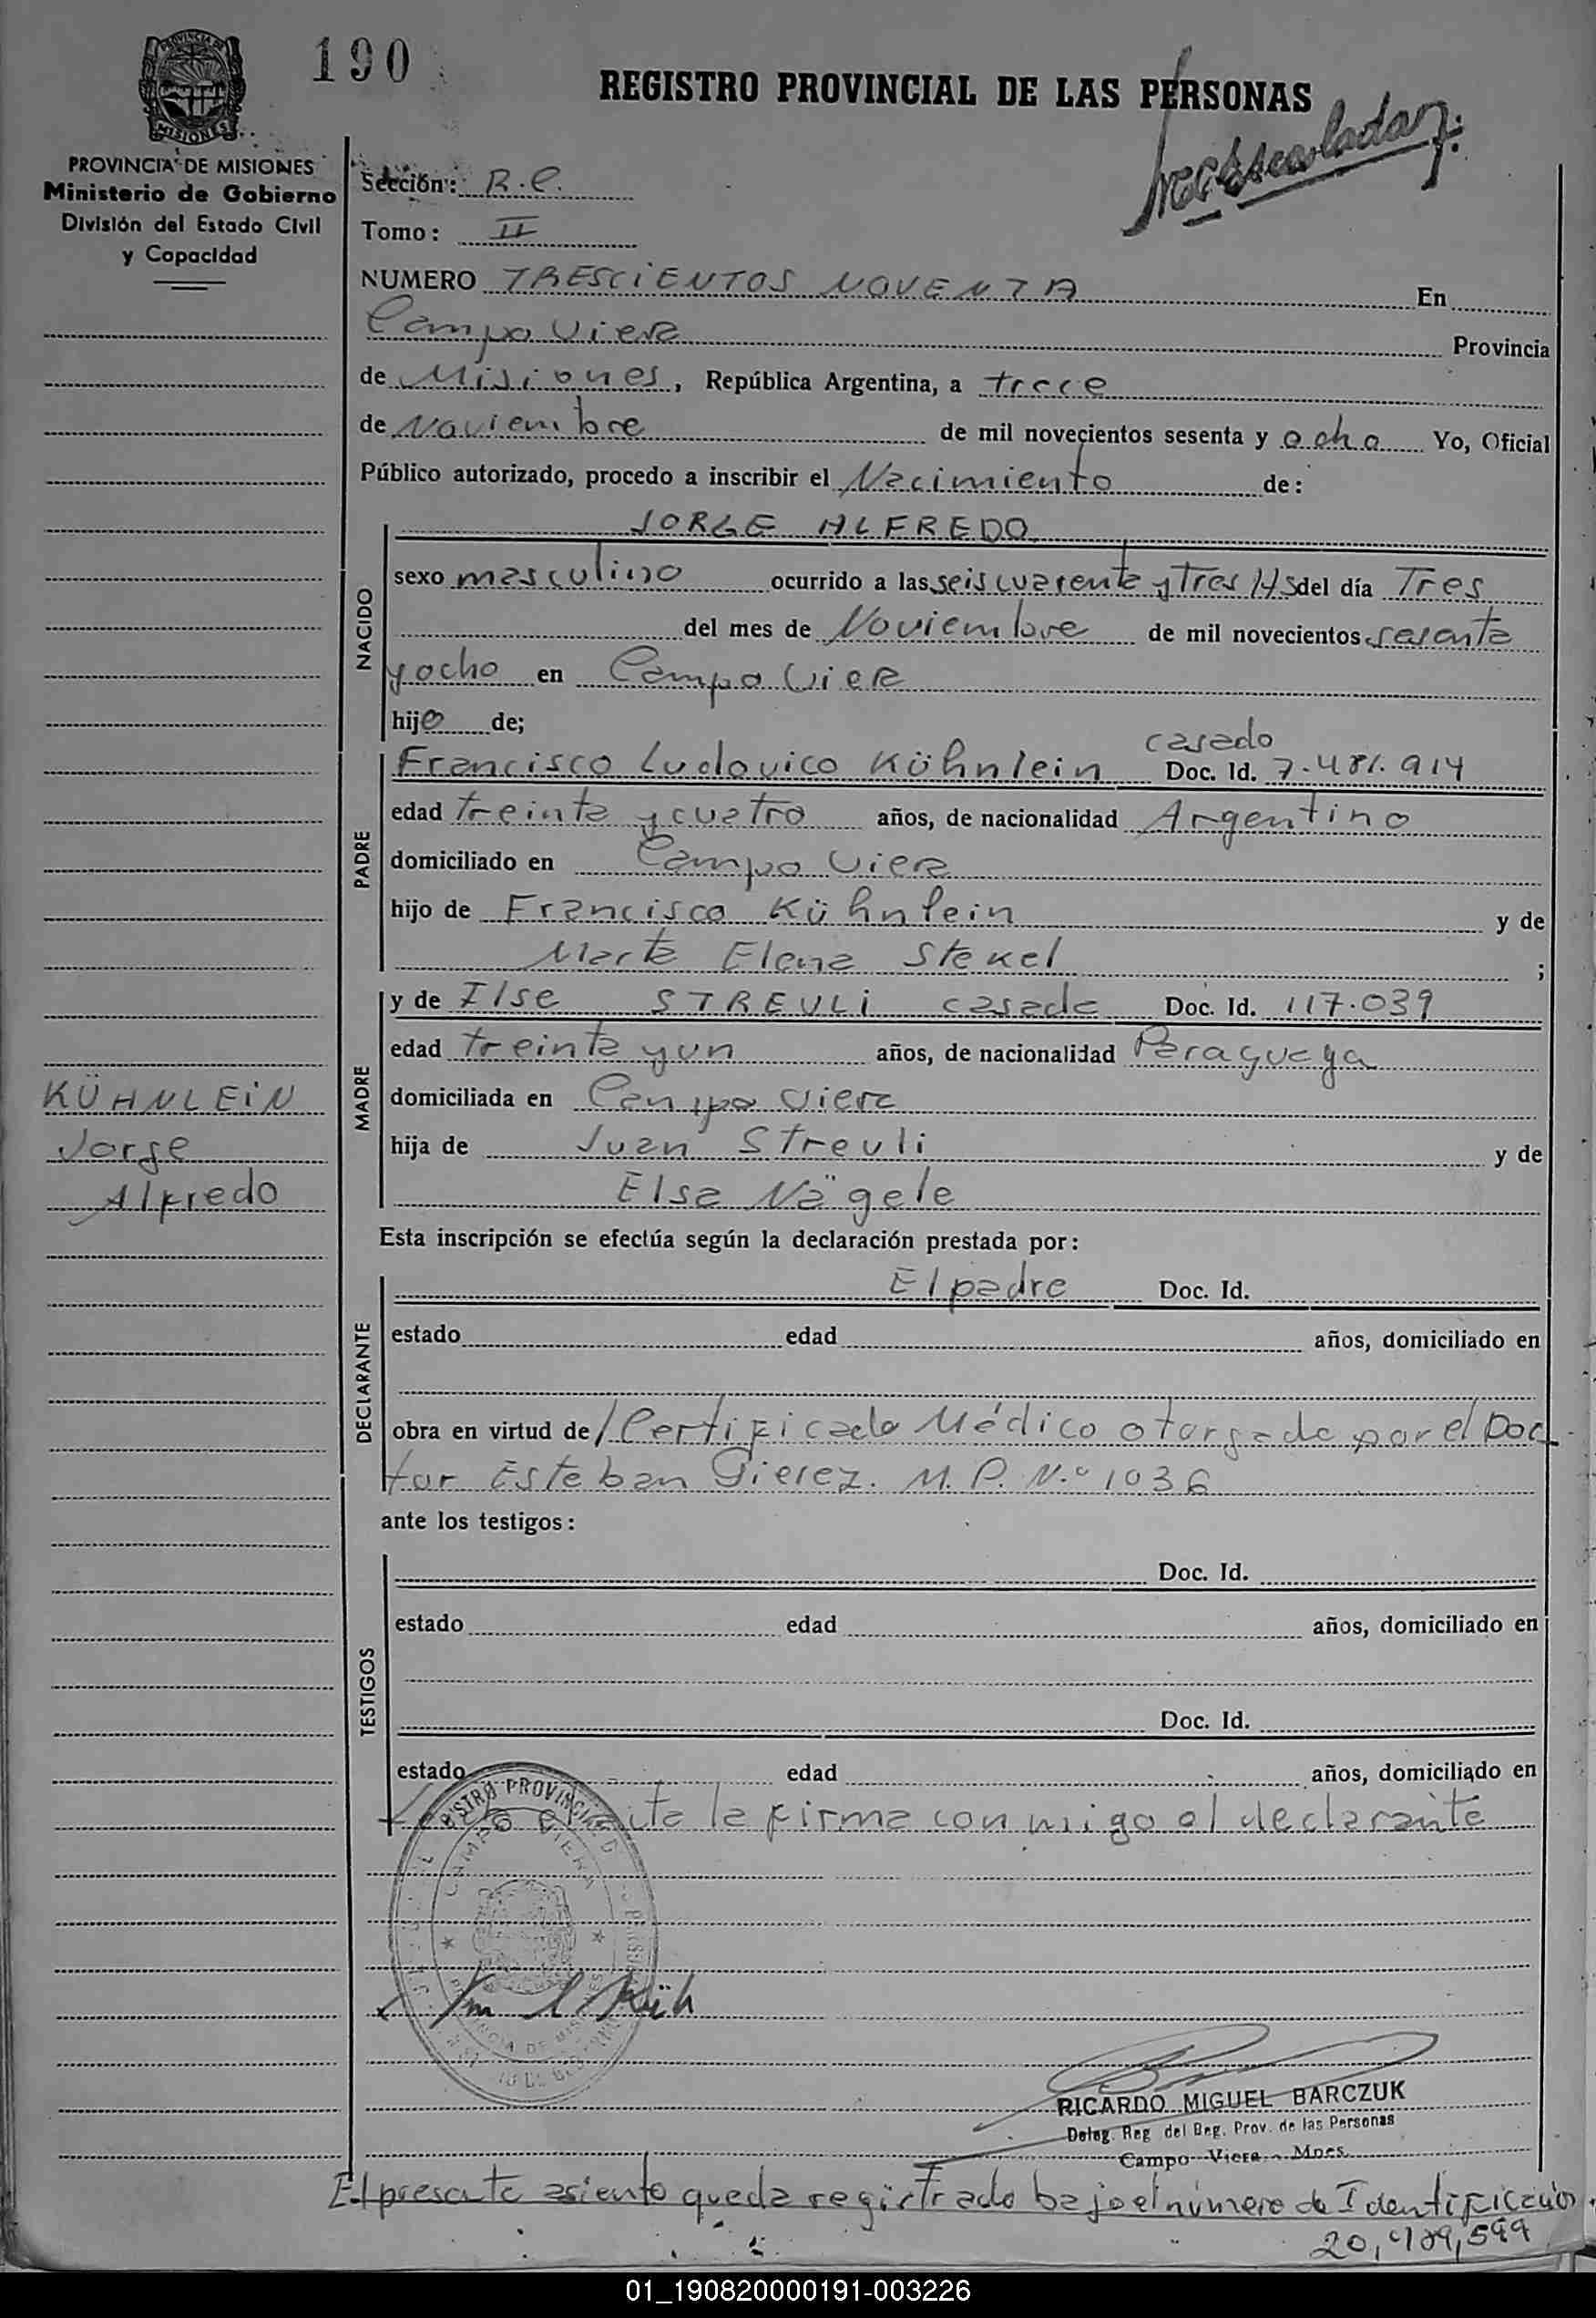 190
REGISTRO PROVINCIAL DE LAS PERSONAS
PROVINCIA DE MISIONES
Ministerio de Gobierno
División del Estado Civil
y Capacidad
Sección: R.C.
Tomo: II
NUMERO TRESCIENTOS NOVENTA En
Campo Viera Provincia
de Misiones, República Argentina, a trece
de Noviembre de mil novecientos sesenta y ocho Yo, Oficial
Público autorizado, procedo a inscribir el Nacimiento de:
NACIDO
JORGE ALFREDO
sexo masculino ocurrido a las seis cuarenta y Tres Hs del día Tres
del mes de Noviembre de mil novecientos sesenta
y ocho en Campo Viera
hijo de;
PADRE
casado
Francisco Ludovico Kühnlein Doc. Id. 7.481.914
edad treinta y cuatro años, de nacionalidad Argentino
domiciliado en Campo Viera
hijo de Francisco Kühnlein y de
Marta Elena Stekel ;
MADRE
y de Ilse STREULI casada Doc. Id. 117.039
edad treinta y un años, de nacionalidad Paraguaya
domiciliada en Campo Viera
hija de Juan Streuli y de
Elsa Nägele
KÜHNLEIN
Jorge
Alfredo
Esta inscripción se efectúa según la declaración prestada por:
DECLARANTE
El padre Doc. Id.
estado edad años, domiciliado en
obra en virtud de / Certificado Médico otorgado por el Doc
tor Esteban M.P. N.º 1036
ante los testigos:
TESTIGOS
Doc. Id.
estado edad años, domiciliado en
Doc. Id.
estado edad años, domiciliado en
la firma conmigo el declarante
CAMPO VIERA
RICARDO MIGUEL BARCZUK
Deleg. Reg. del Reg. Prov. de las Personas
Campo Viera - Mnes.
El presente asiento queda registrado bajo el número de Identificación.
01_190820000191-003226